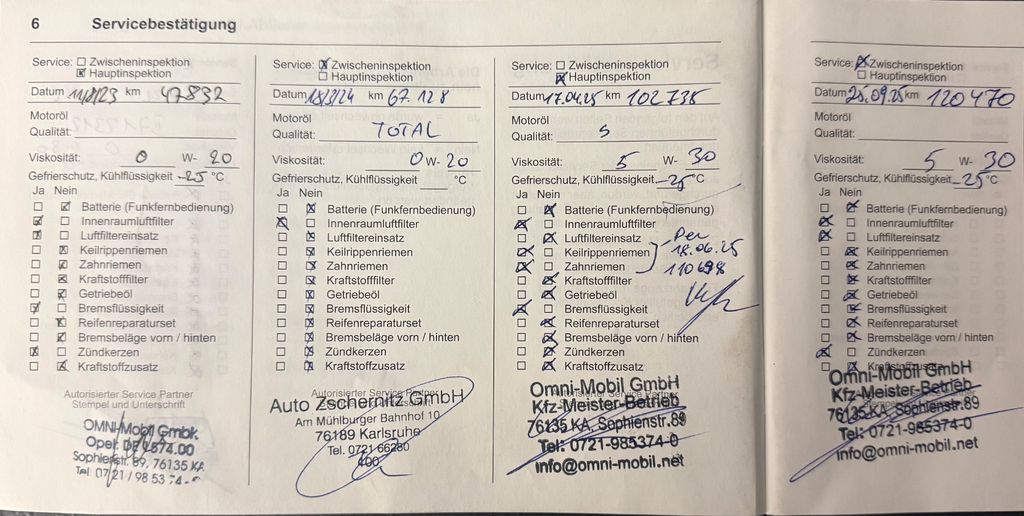 6 Servicebestätigung
Service: ☐ Zwischeninspektion
☒ Hauptinspektion
Datum km 47832
Motoröl
Qualität:
Viskosität: 0 W- 20
Gefrierschutz, Kühlflüssigkeit -25 °C
Ja Nein
☐ ☒ Batterie (Funkfernbedienung)
☒ ☐ Innenraumluftfilter
☒ ☐ Luftfiltereinsatz
☐ ☒ Keilrippenriemen
☐ ☒ Zahnriemen
☐ ☒ Kraftstofffilter
☐ ☒ Getriebeöl
☒ ☐ Bremsflüssigkeit
☐ ☒ Reifenreparaturset
☐ ☒ Bremsbeläge vorn / hinten
☒ ☐ Zündkerzen
☐ ☒ Kraftstoffzusatz
Autorisierter Service Partner
Stempel und Unterschrift
OMNI-Mobil GmbH
Opel
Sophienstr. 89, 76135 KA
Tel 0721 / 98 53 74 - 0
Service: ☒ Zwischeninspektion
☐ Hauptinspektion
Datum 18/3/24 km 67.128
Motoröl
Qualität: TOTAL
Viskosität: 0 W- 20
Gefrierschutz, Kühlflüssigkeit °C
Ja Nein
☐ ☒ Batterie (Funkfernbedienung)
☒ ☐ Innenraumluftfilter
☐ ☒ Luftfiltereinsatz
☐ ☒ Keilrippenriemen
☐ ☒ Zahnriemen
☐ ☒ Kraftstofffilter
☐ ☒ Getriebeöl
☐ ☒ Bremsflüssigkeit
☐ ☒ Reifenreparaturset
☐ ☒ Bremsbeläge vorn / hinten
☐ ☒ Zündkerzen
☐ ☒ Kraftstoffzusatz
Autorisierter Service Partner
Auto Zschernitz GmbH
Am Mühlburger Bahnhof 10
76189 Karlsruhe
Tel. 0721 66280
400
Service: ☐ Zwischeninspektion
☒ Hauptinspektion
Datum 17.04.25 km 102735
Motoröl
Qualität: 5
Viskosität: 5 W- 30
Gefrierschutz, Kühlflüssigkeit -25 °C
Ja Nein
☐ ☒ Batterie (Funkfernbedienung)
☒ ☐ Innenraumluftfilter
☐ ☒ Luftfiltereinsatz
☒ ☐ Keilrippenriemen
☒ ☐ Zahnriemen
18.06.25
110698
☐ ☒ Kraftstofffilter
☐ ☒ Getriebeöl
☒ ☐ Bremsflüssigkeit
☐ ☒ Reifenreparaturset
☐ ☒ Bremsbeläge vorn / hinten
☐ ☒ Zündkerzen
☐ ☒ Kraftstoffzusatz
Omni-Mobil GmbH
Kfz-Meister-Betrieb
76135 KA, Sophienstr.89
Tel: 0721-985374-0
info@omni-mobil.net
Service: ☒ Zwischeninspektion
☐ Hauptinspektion
Datum 25.09.25 km 120470
Motoröl
Qualität:
Viskosität: 5 W- 30
Gefrierschutz, Kühlflüssigkeit -25 °C
Ja Nein
☐ ☒ Batterie (Funkfernbedienung)
☒ ☐ Innenraumluftfilter
☒ ☐ Luftfiltereinsatz
☐ ☒ Keilrippenriemen
☐ ☒ Zahnriemen
☐ ☒ Kraftstofffilter
☐ ☒ Getriebeöl
☐ ☒ Bremsflüssigkeit
☐ ☒ Reifenreparaturset
☐ ☒ Bremsbeläge vorn / hinten
☒ ☐ Zündkerzen
☐ ☒ Kraftstoffzusatz
Omni-Mobil GmbH
Kfz-Meister-Betrieb
76135 KA, Sophienstr.89
Tel: 0721-985374-0
info@omni-mobil.net